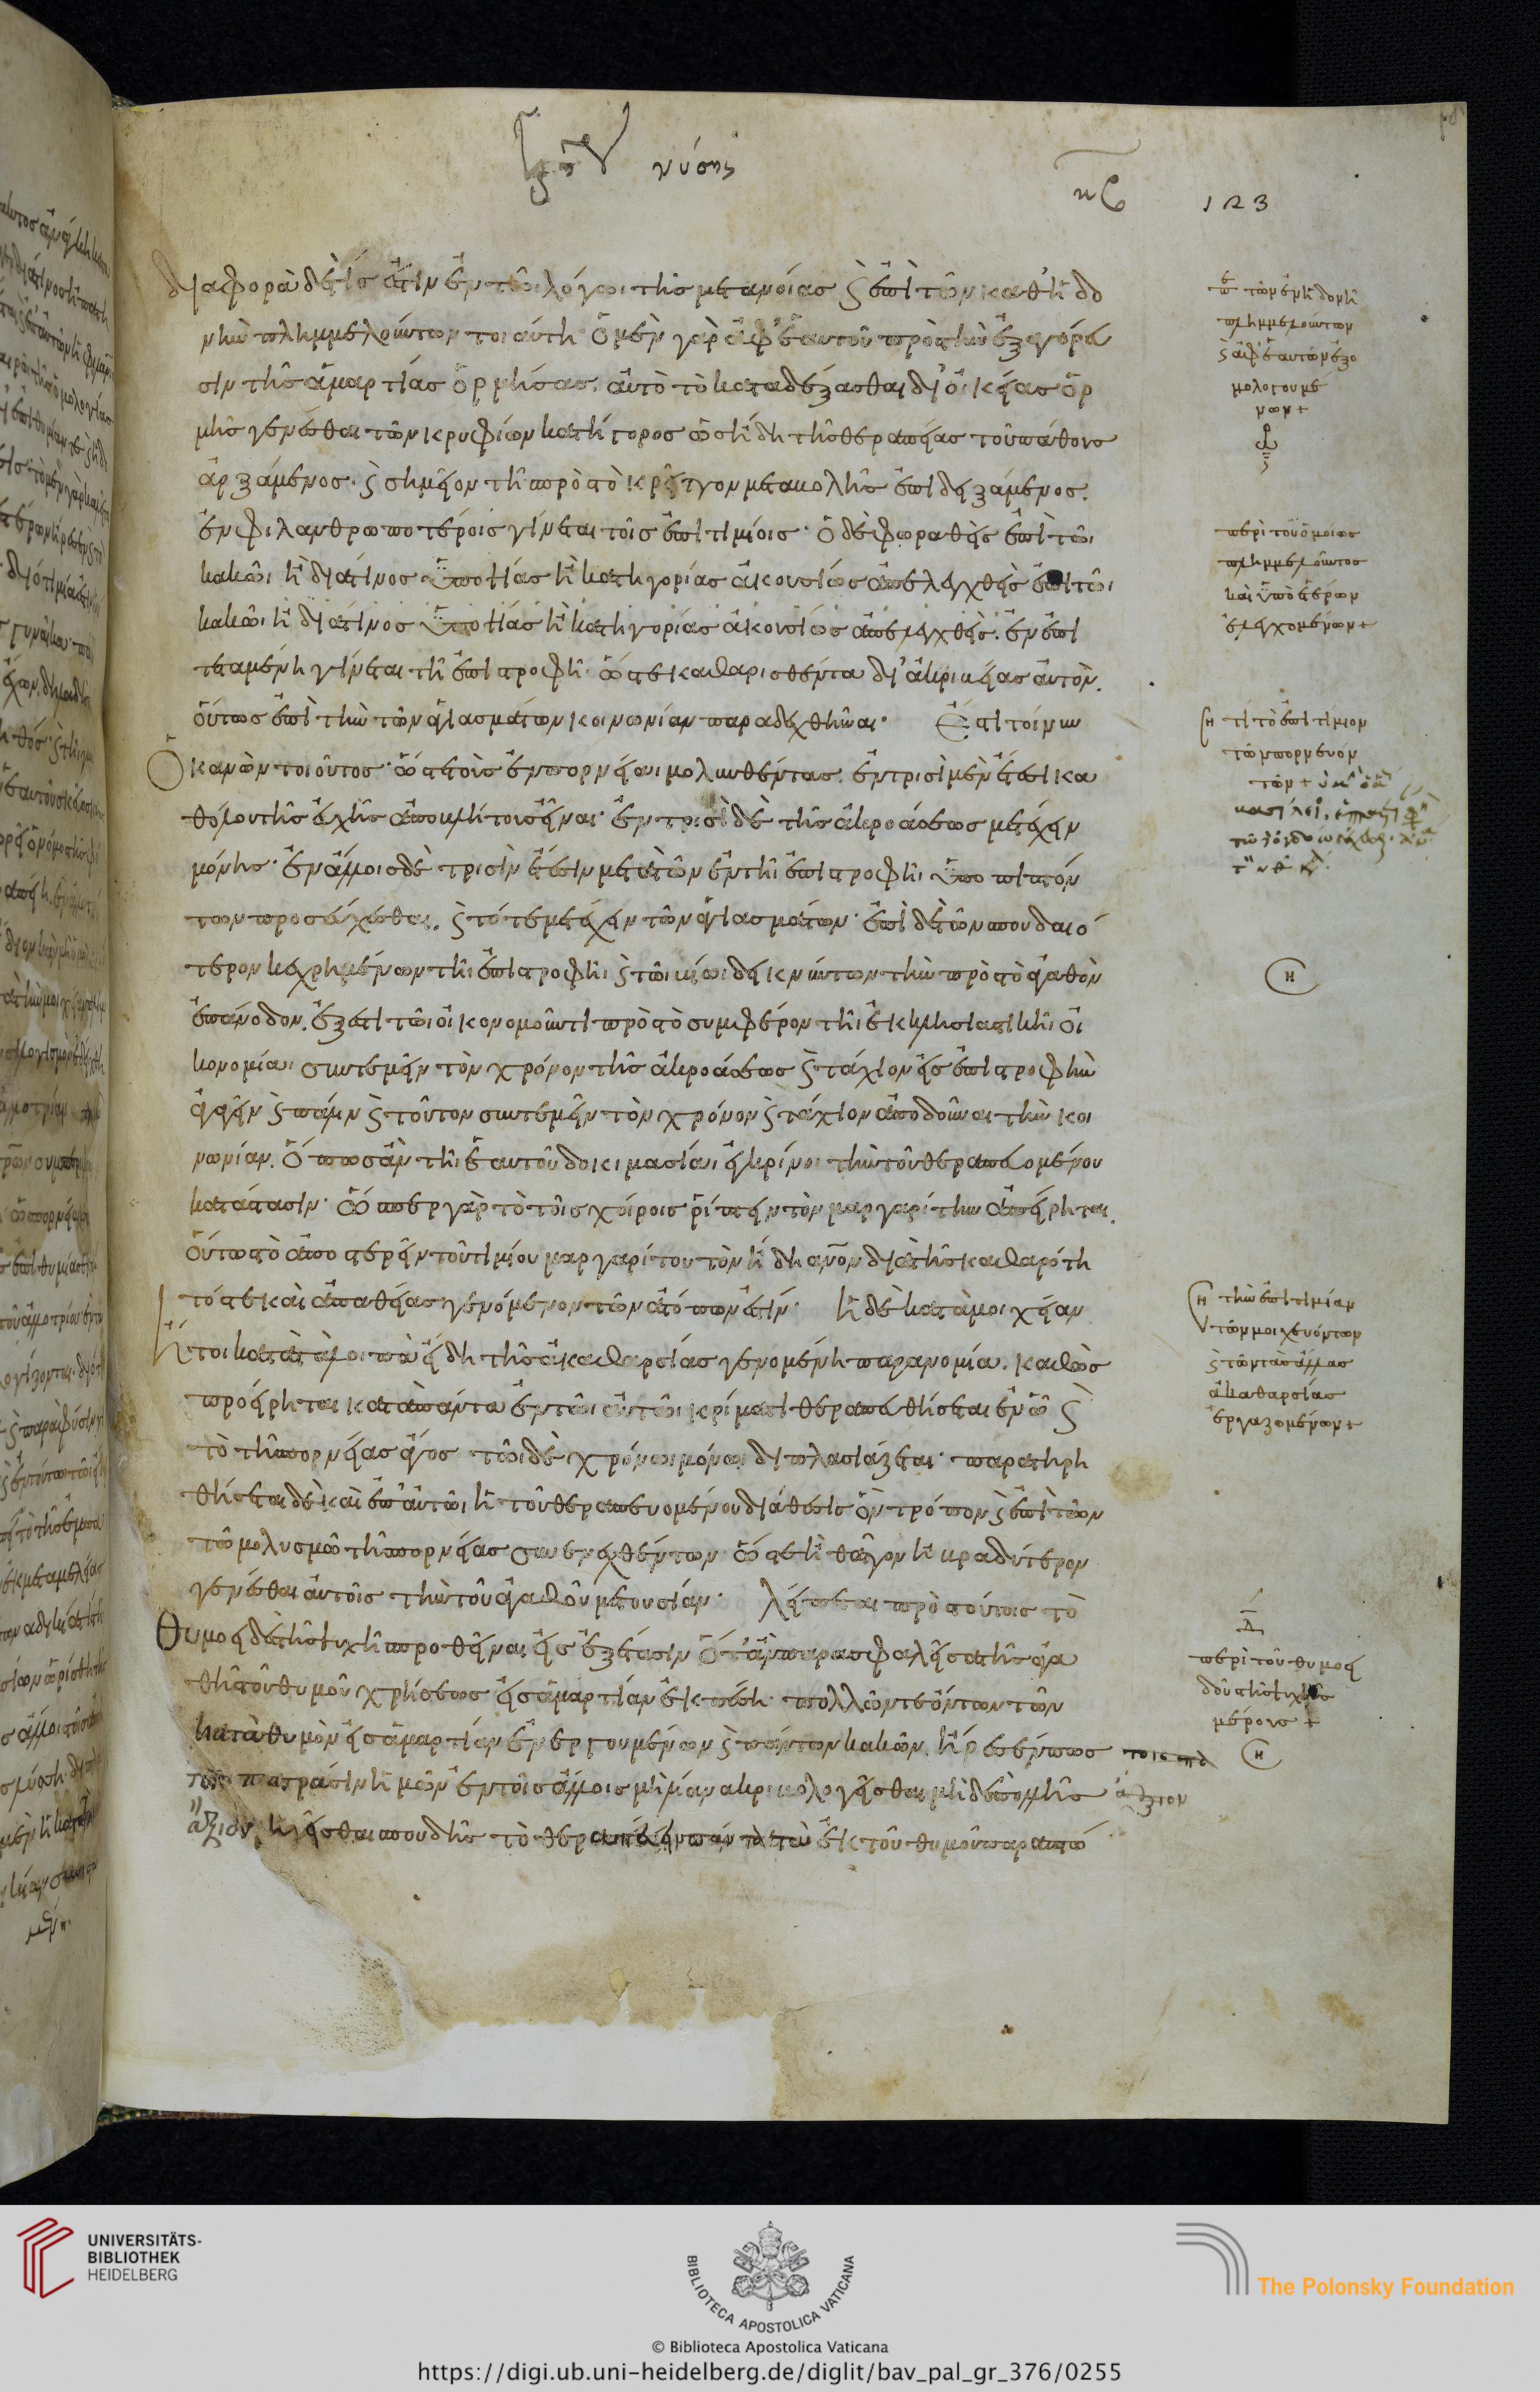 Γρηγορίου νύσης
κς 123
διαφορὰ δέ τίς ἐστιν ἐν τῶι λόγωι τῆς μετανοίας καὶ ἐπὶ τῶν καθ' ἡδο
νὴν πλημμελούντων τοιαύτη· ὁ μὲν γὰρ ἀφ' ἑαυτοῦ πρὸς τὴν ἐξαγόρευ
σιν τῆς ἁμαρτίας ὁρμήσας. αὐτὸ τὸ καταδέξασθαι δι' οἰκείας ὁρ
μῆς γενέσθαι τῶν κρυφίων κατήγορος ὡς ἤδη τῆς θεραπείας τοῦ πάθους
ἀρξάμενος. καὶ σημεῖον τῆς πρὸς τὸ κρεῖττον μεταβολῆς ἐπιδειξάμενος.
ἐν φιλανθρωποτέροις γίνεται τοῖς ἐπιτιμίοις· ὁ δὲ φωραθεὶς ἐπὶ τῶι
κακῶι ἢ διά τινος ὑποψίας ἢ κατηγορίας ἀκουσίως ἀπελεγχθεὶς ἐπὶ τῶι
κακῶι ἢ διά τινος ὑποψίας ἢ κατηγορίας ἀκουσίως ἀπελεγχθεὶς. ἐν ἐπι
τεταμένη γίνεται τῆ ἐπιστροφῆ· ὥστε καθαρισθέντα δι' ἀκριβείας αὐτὸν.
οὕτως ἐπὶ τὴν τῶν ἁγιασμάτων κοινωνίαν παραδεχθῆναι· Ἔστι τοίνυν
Ὁ κανὼν τοιοῦτος· ὥστε τοὺς ἐν πορνείαι μολυνθέντας. ἐν τρισὶ μὲν ἔτεσι κα
θόλου τῆς εὐχῆς ἀποβλήτους εἶναι· ἐν τρισὶ δὲ τῆς ἀκροάσεως μετέχειν
μόνης· ἐν ἄλλοις δὲ τρισὶν ἔτεσιν μετὰ τῶν ἐν τῆι ἐπιστροφῆι ὑποπιπτόν
των προσεύχεσθαι. καὶ τότε μετέχειν τῶν ἁγιασμάτων· ἐπὶ δὲ τῶν σπουδαιό
τερον κεχρημένων τῆι ἐπιστροφῆι καὶ τῶι βίωι δεικνύντων τὴν πρὸς τὸ ἀγαθὸν
ἐπάνοδον. ἔξεστι τῶι οἰκονομοῦντι πρὸς τὸ συμφέρον τῆι ἐκκλησιαστικῆι οἰ
κονομίαι συντεμεῖν τὸν χρόνον τῆς ἀκροάσεως καὶ τάχιον εἰς ἐπιστροφὴν
ἀγαγεῖν καὶ πάλιν καὶ τοῦτον συντεμεῖν τὸν χρόνον καὶ τάχιον ἀποδοῦναι τὴν κοι
νωνίαν. ὅπως ἂν τῆι ἑαυτοῦ δοκιμασίαι ἐγκρίνοι τὴν τοῦ θεραπευομένου
κατάστασιν· ὥσπερ γὰρ τὸ τοῖς χοίροις ῥίπτειν τὸν μαργαρίτην ἀπείρηται.
οὕτω τὸ ἀποστερεῖν τοῦ τιμίου μαργαρίτου τὸν ἤδη ἄνον διὰ τῆς καθαρότη
τός τε καὶ ἀπαθείας γενόμενον τῶν ἀτόπων ἐστίν· ἡ δὲ κατὰ μοιχείαν
ἤτοι κατὰ τὰ λοιπὰ εἴδη τῆς ἀκαθαρσίας γενομένη παρανομία. καθὼς
προείρηται κατὰ πάντα ἐν τῶι αὐτῶι κρίματι θεραπευθήσεται ἐν ὧ καὶ
τὸ τῆς πορνείας ἄγος τῶι δὲ χρόνωι μόνωι διπλασιάζεται· παρατηρη
θήσεται δὲ καὶ ἐπ' αὐτῶι ἡ τοῦ θεραπευομένου διάθεσις ὃν τρόπον καὶ ἐπὶ τῶν
τῶ μολυσμῶ τῆς πορνείας συνενεχθέντων· ὥστε ἢ θᾶττον ἢ βραδύτερον
γενέσθαι αὐτοῖς τὴν τοῦ ἀγαθοῦ μετουσίαν· λείπεται πρὸς τούτοις τὸ
Θυμοειδὲς τῆς ψυχῆς προθεῖναι εἰς ἐξέτασιν ὅτ' ἂν παρασφαλεῖσα τῆς ἀγα
θῆς τοῦ θυμοῦ χρήσεως εἰς ἁμαρτίαν ἐκπέση· πολλῶν τε ὄντων τῶν
κατὰ θυμὸν εἰς ἁμαρτίαν ἐνεργουμένων καὶ πάντων κακῶν. ἤρεσέν πως
τοῖς πατράσιν ἡμῶν ἐν τοῖς ἄλλοις μὴ λίαν ἀκριβολογεῖσθαι μὴ δὲ πολλῆς
ἄξιον ἡγεῖσθαι σπουδῆς τὸ θεραπεύειν πάντα τὰ ἐκ τοῦ θυμοῦ παραπτώ
ἐπὶ τῶν ἐν ἡδονῆ
πλημμελούντων
καὶ ἀφ' ἑαυτῶν ἐξο
μολογουμέ
νων
περὶ τοῦ ὁμοίως
πλημμελοῦντος
καὶ ὑπὸ ἑτέρων
ἐλεγχομένων
τί τὸ ἐπιτίμιον
τῶν πορνευόν
των
τὴν ἐπιτιμίαν
τῶν μοιχευόντων
καὶ τῶν τὰς ἄλλας
ἀκαθαρσίας
ἐργαζομένων
περὶ τοῦ θυμοει
δοῦς τῆς ψυχῆς
μέρους
ἄξιον
UNIVERSITÄTS-
BIBLIOTHEK
HEIDELBERG
BIBLIOTECA APOSTOLICA VATICANA
The Polonsky Foundation
© Biblioteca Apostolica Vaticana
https://digi.ub.uni-heidelberg.de/diglit/bav_pal_gr_376/0255